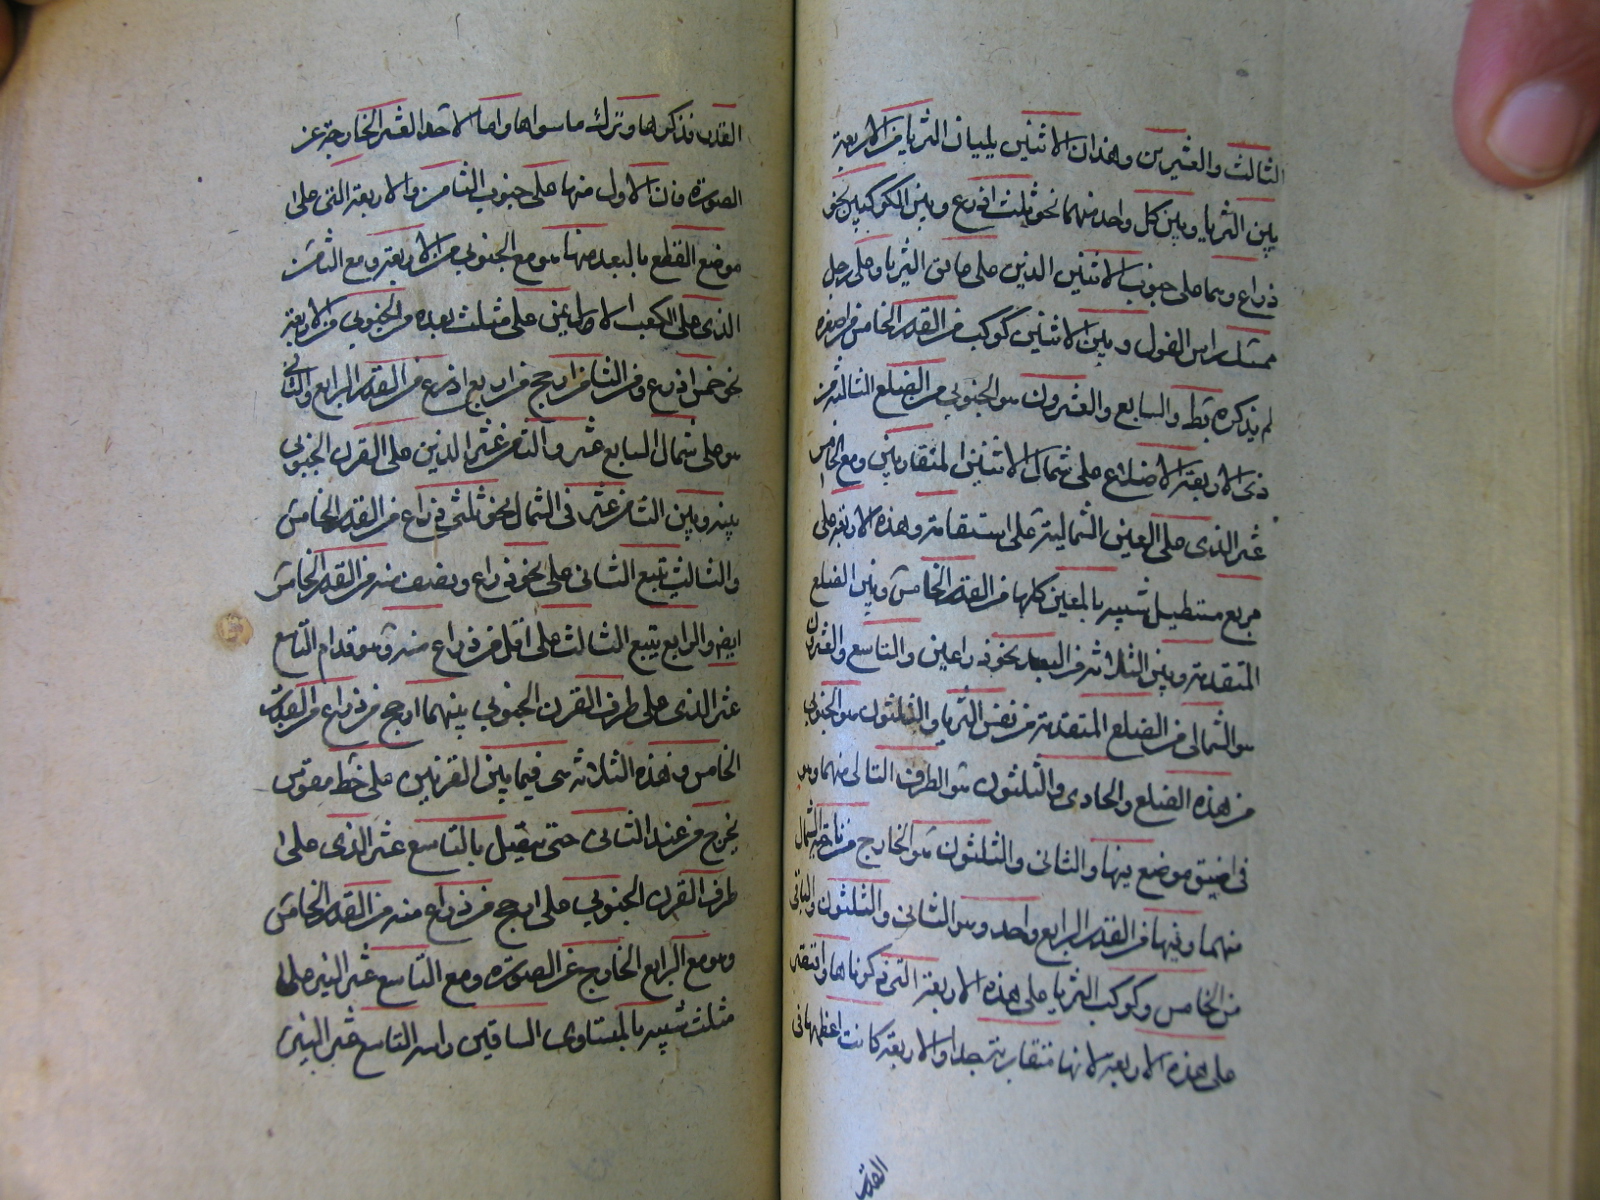 الثالث والعشرين وهذان الاثنين يليان الثريا من الاربعة
بين الثريا وبين كل واحد منهما نحو ثلث اذرع وبين الكوكبين نحو
ذراع وهما على جنوب الاثنين الذين على ساق الثريا وعلى رجل
ممسك راس الغول وبين الاثنين كوكب من القدر الخامس من اصغره
لم يذكره بط والسابع والعشرون هو الجنوبي من الضلع الثالثة من
ذى الاربعة الاضلاع على شمال الاثنين المتقاربين ومع الخامس
عشر الذى على العين الشمالية على استقامة وهذه الاربعة على
مربع مستطيل شبيه بالمعين كلها من القدر الخامس وبين الضلع
المتقدمة وبين الثلاثة من البعد نحو ذراعين والتاسع والعشرون
هو الشمالى من الضلع المتقدمة من نفس الثريا والثلثون هو الجنوبي
من هذه الضلع والحادى والثلثون هو الطرف التالى منهما وهو
فى اضيق موضع فيها والثانى والثلثون هو الخارج من ناحية الشمال
منهما وفيها من القدر الرابع واحد وهو الثانى والثلثون والباقى
من الخامس وكوكب الثريا على هذه الاربعة التى ذكرناها واتفقر
على هذه الاربعة لانها متقاربة جدا والاربعة كانت اعظمها فى
القدر
القدر فذكرها وترك ما سواها واما الاحد العشر الخارجة عن
الصورة فان الاول منها على جنوب الثامن والاربعة التى على
موضع القطع بالبعد منها هو مع الجنوبي من الاربعة ومع الثامن
الذى على الكعب الايمن على مثلث بعده من الجنوبي من الاربعة
نحو خمس اذرع ومن الثامن ارجح من اربع اذرع من القدر الرابع والثانى
هو على شمال السابع عشر والثامن عشر الذين على القرن الجنوبي
بينه وبين الثامن عشر فى الشمال نحو ثلثى ذراع من القدر الخامس
والثالث يتبع الثانى على نحو ذراع ونصف منه من القدر الخامس
ايضا والرابع يتبع الثالث على اقل من ذراع منه وهو قدام التاسع
عشر الذى على طرف القرن الجنوبي بينهما ارجح من ذراع من القدر
الخامس وهذه الثلاثة هى فيما بين القرنين على خط مقوس
يخرج من عند الثانى حتى يتصل بالتاسع عشر الذى على
طرف القرن الجنوبي على ارجح من ذراع منه من القدر الخامس
وهو مع الرابع الخارج عن الصورة ومع التاسع عشر النير على
مثلث شبيه بالمتساوى الساقين راسه التاسع عشر النير